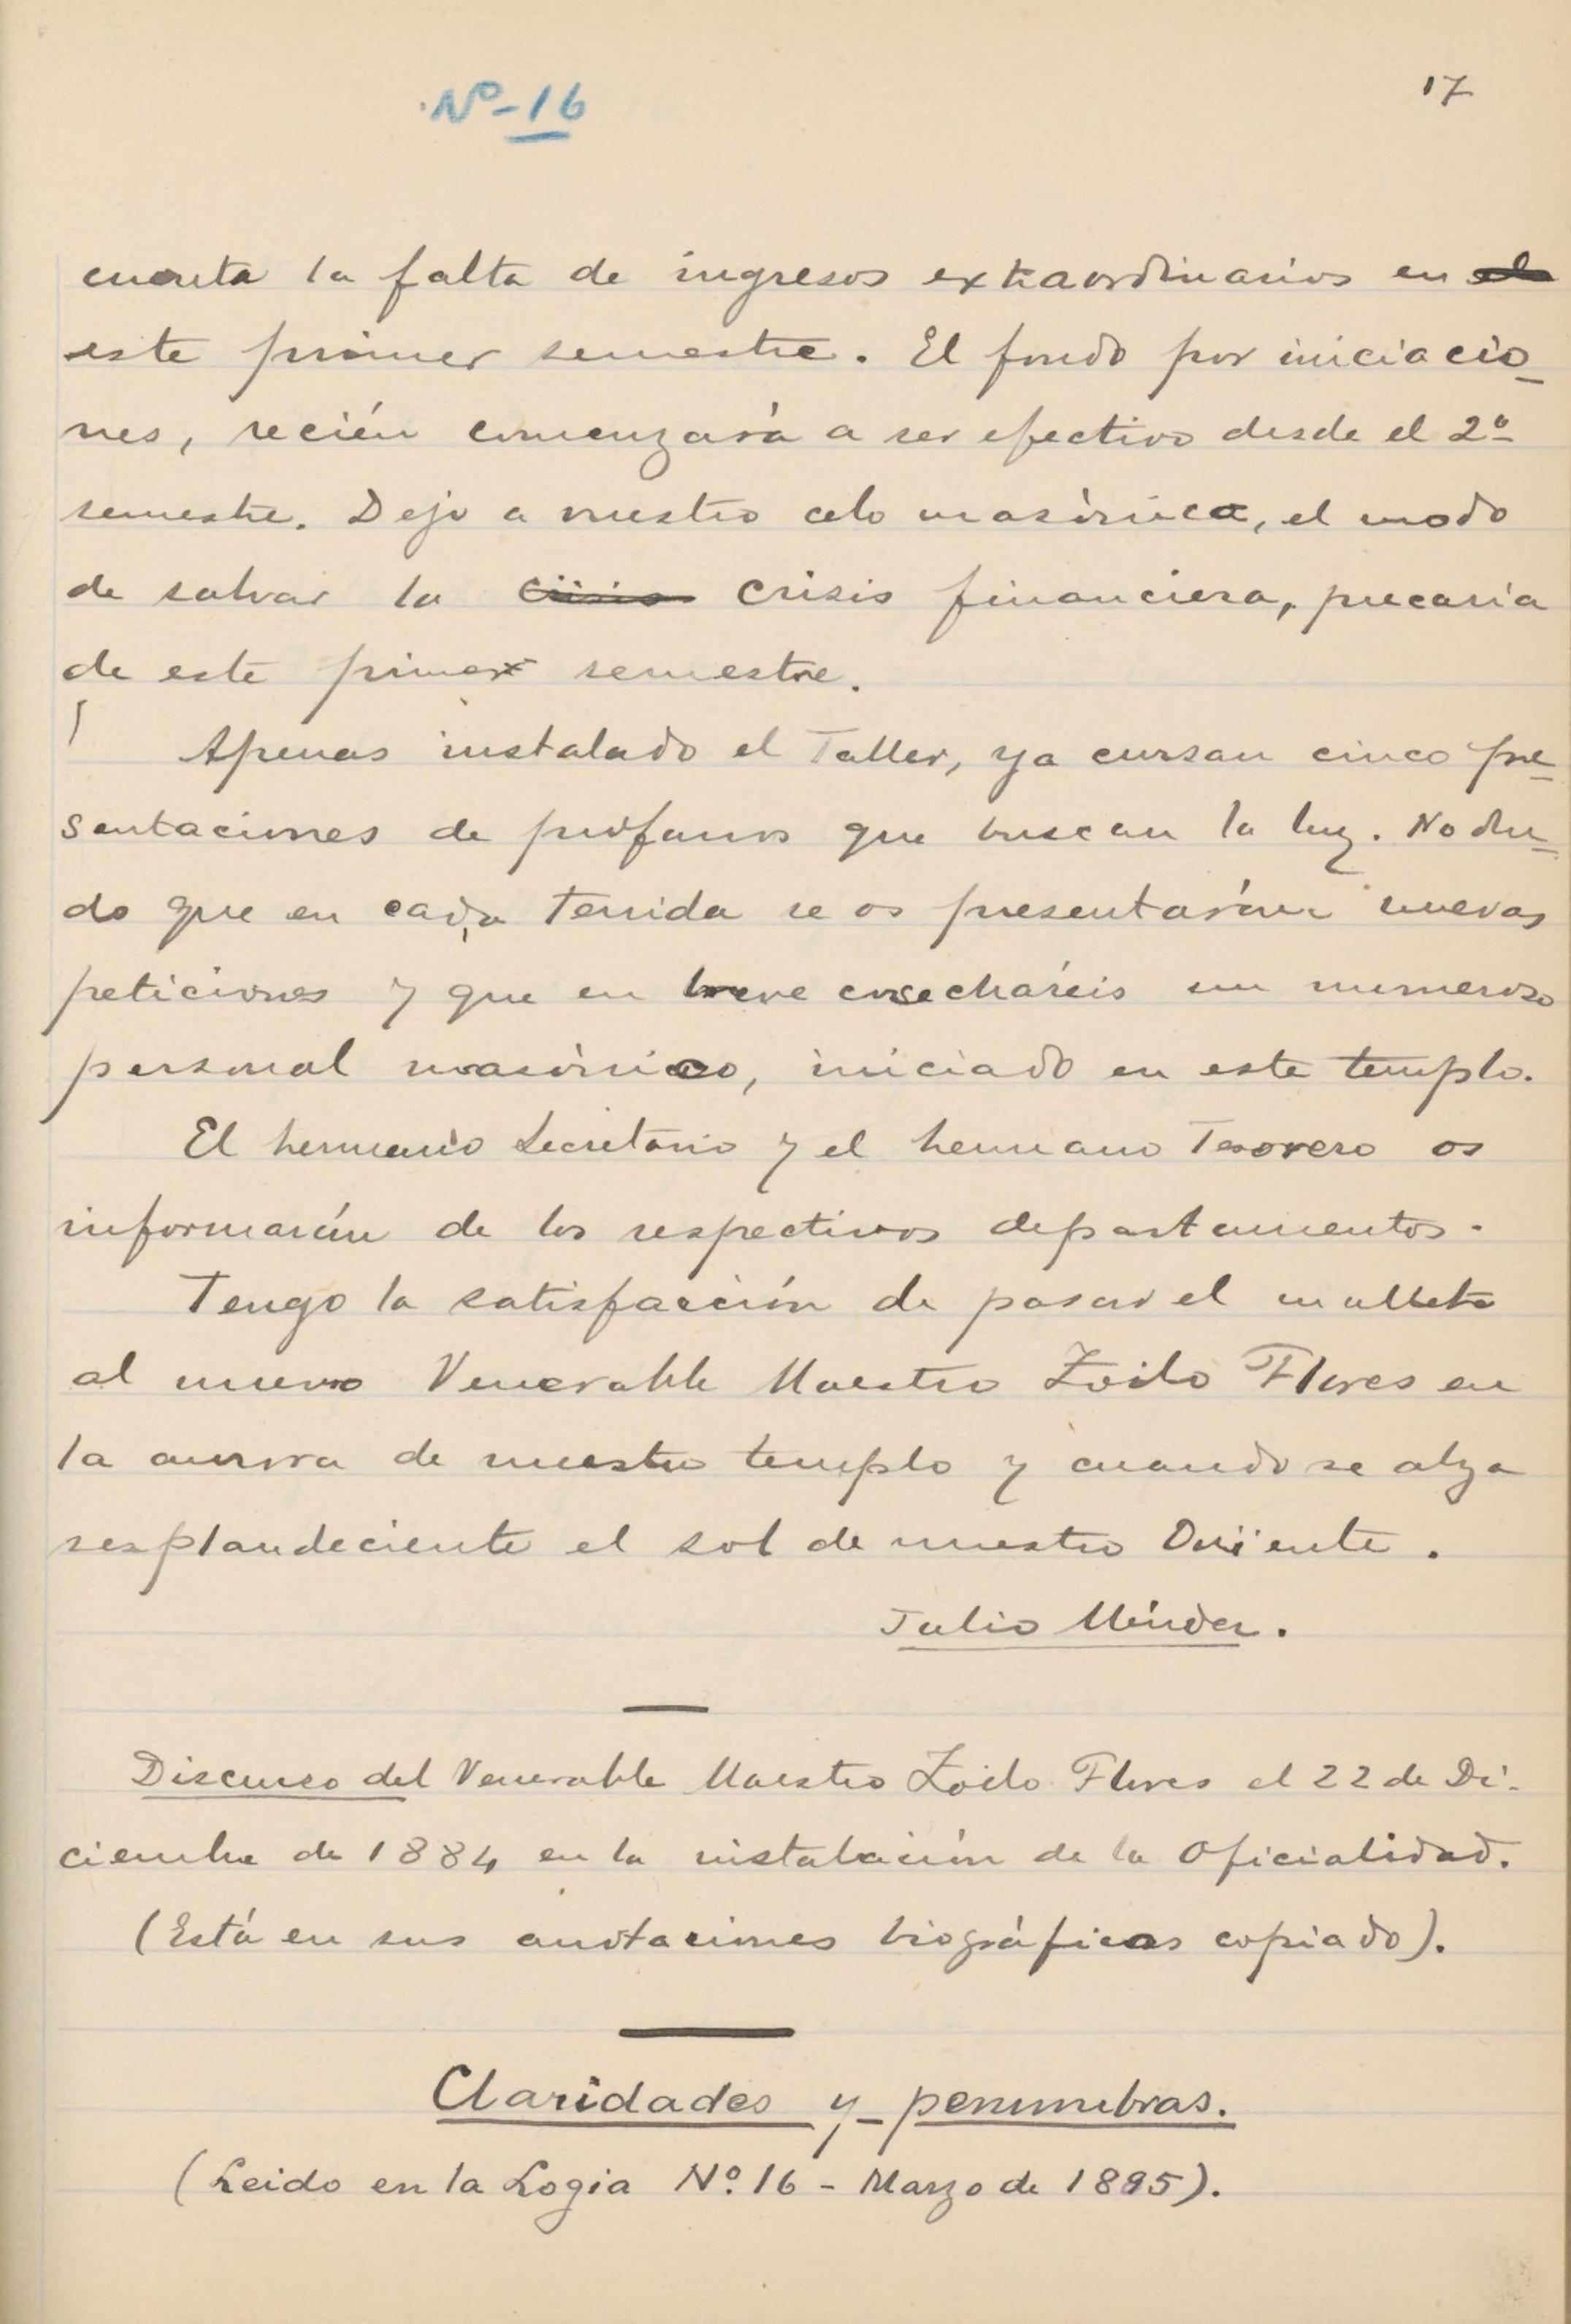 Nº-16
17
cuenta la falta de ingresos extraordinarios en el
este primer semestre. El fondo por iniciacio_
nes, recién comenzará a ser efectivo desde el 2º
semestre. Dejo a vuestro celo masónico, el modo
de salvar la crisis crisis financiera, precaria
de este primer semestre.
Apenas instalado el Taller, ya cursan cinco pre_
sentaciones de profanos que buscan la luz. No du_
do que en cada Tenida se os presentarán nuevas
peticiones y que en breve cosecharéis un numeroso
personal masónico, iniciado en este templo.
El hermano Secretario y el hermano Tesorero os
informarán de los respectivos departamentos.
Tengo la satisfacción de pasar el mallete
al nuevo Venerable Maestro Zoilo Flores en
la aurora de nuestro templo y cuando se alza
resplandeciente el sol de nuestro Oriente.
Julio Méndez.
Discurso del Venerable Maestro Zoilo Flores el 22 de Di-
ciembre de 1884 en la instalación de la Oficialidad.
(Está en sus anotaciones biográficas copiado).
Claridades y penumbras.
(Leido en la Logia Nº. 16 - Marzo de 1895).